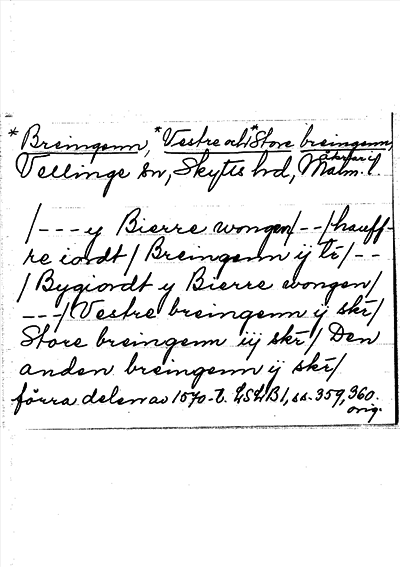 *Breingenn, *Vestre och *Store breingenn,
åkrar i
Vellinge sn, Skytts hd, Malm. l.
/--- y Bierre wongen/--/hauff-
re iordt/Breingenn ij tr/--
/Bygiordt y Bierre wongen/
---/Vestre breingenn ij skr/
Store breingenn iij skr/Den
anden breingenn ij skr/
förra delen av 1570-t. LSLB1, ss. 359, 360.
orig.